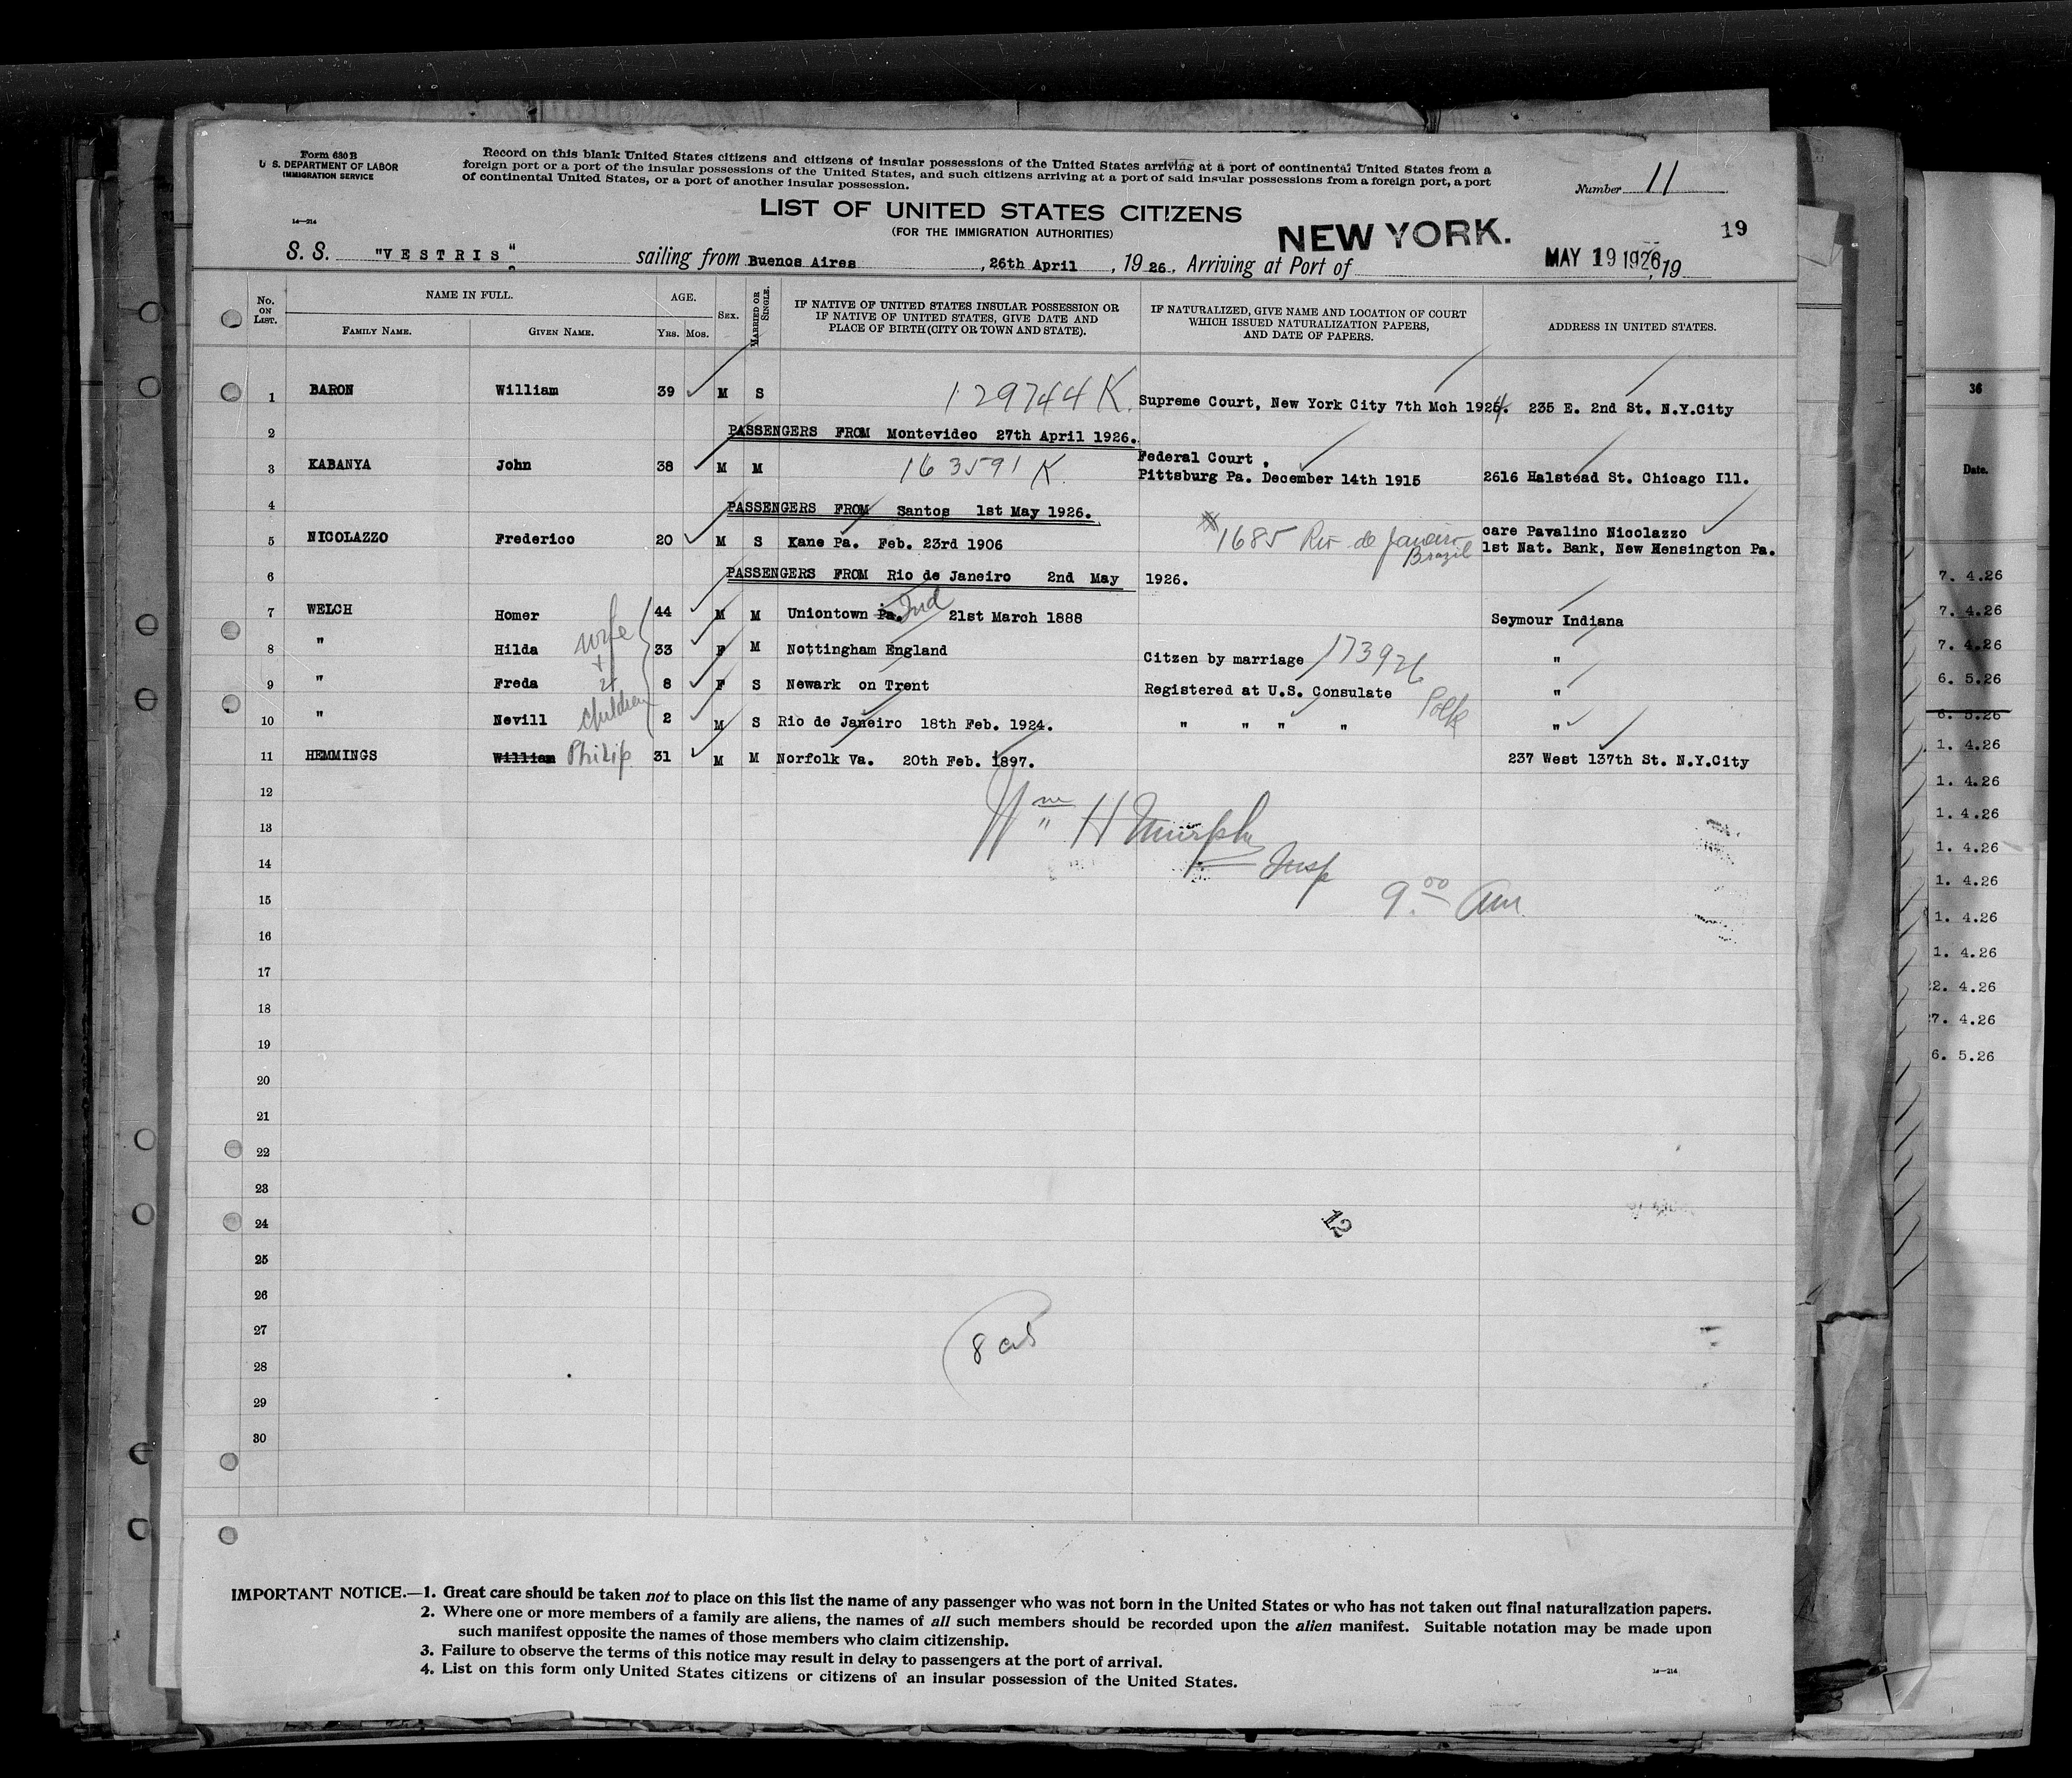 Form 630 B
U. S. DEPARTMENT OF LABOR
IMMIGRATION SERVICE
14—214
Record on this blank United States citizens and citizens of insular possessions of the United States arriving at a port of continental United States from a
foreign port or a port of the insular possessions of the United States, and such citizens arriving at a port of said insular possessions from a foreign port, a port
of continental United States, or a port of another insular possession.
Number 11
LIST OF UNITED STATES CITIZENS
(FOR THE IMMIGRATION AUTHORITIES)
NEW YORK.
19
S. S. "VESTRIS" sailing from Buenos Aires, 26th April, 1926. Arriving at Port of MAY 19 1926, 19
No. ON LIST. NAME IN FULL. AGE. SEX. MARRIED OR SINGLE. IF NATIVE OF UNITED STATES INSULAR POSSESSION OR IF NATIVE OF UNITED STATES, GIVE DATE AND PLACE OF BIRTH (CITY OR TOWN AND STATE). IF NATURALIZED, GIVE NAME AND LOCATION OF COURT WHICH ISSUED NATURALIZATION PAPERS, AND DATE OF PAPERS. ADDRESS IN UNITED STATES.
FAMILY NAME. GIVEN NAME. YRS. MOS.
1 BARON William 39 M S 129744 K. Supreme Court, New York City 7th Mch 1924. 235 E. 2nd St. N.Y.City
2 PASSENGERS FROM Montevideo 27th April 1926.
3 KABANYA John 38 M M 163591 K. Federal Court, Pittsburg Pa. December 14th 1915 2616 Halstead St. Chicago Ill.
4 PASSENGERS FROM Santos 1st May 1926.
5 NICOLAZZO Frederico 20 M S Kane Pa. Feb. 23rd 1906 1685 Rio de Janeiro Brazil care Pavalino Nicolazzo 1st Nat. Bank, New Kensington Pa.
6 PASSENGERS FROM Rio de Janeiro 2nd May 1926.
7 WELCH Homer 44 M M Uniontown Pa. Ind 21st March 1888 Seymour Indiana
8 " Hilda wife 33 F M Nottingham England Citzen by marriage 173926 "
9 " Freda + 2 8 F S Newark on Trent Registered at U.S. Consulate "
10 " Nevill children 2 M S Rio de Janeiro 18th Feb. 1924. " " " " "
11 HEMMINGS William Philip 31 M M Norfolk Va. 20th Feb. 1897. 237 West 137th St. N.Y.City
12
Wm H Murphy
13
14
Insp
15
9.00 Am
16
17
18
19
20
21
22
23
24
12
25
26
27
8
28
29
30
IMPORTANT NOTICE.—1. Great care should be taken not to place on this list the name of any passenger who was not born in the United States or who has not taken out final naturalization papers.
2. Where one or more members of a family are aliens, the names of all such members should be recorded upon the alien manifest. Suitable notation may be made upon
such manifest opposite the names of those members who claim citizenship.
3. Failure to observe the terms of this notice may result in delay to passengers at the port of arrival.
4. List on this form only United States citizens or citizens of an insular possession of the United States.
14—214
36
Date.
7. 4.26
7. 4.26
7. 4.26
6. 5.26
6. 5.26
1. 4.26
1. 4.26
1. 4.26
1. 4.26
1. 4.26
1. 4.26
1. 4.26
2. 4.26
7. 4.26
6. 5.26